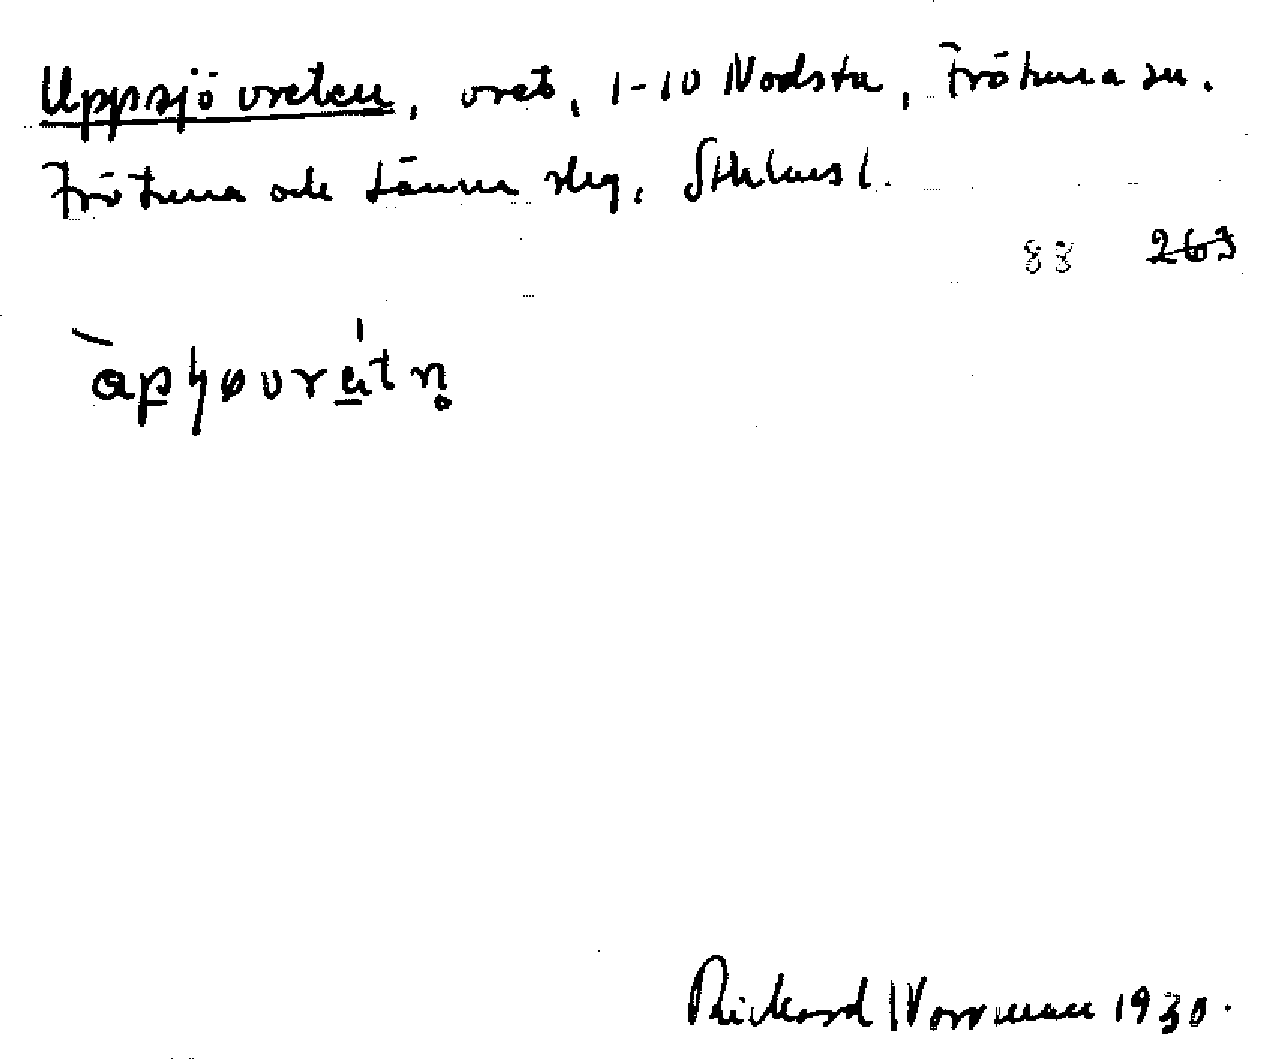 Uppsjövreten, vret, 1-10 Nodsta, Frötuna sn.
Frötuna och Länna skg, Sthlms l.
88 263
Rickard Norrman 1930.